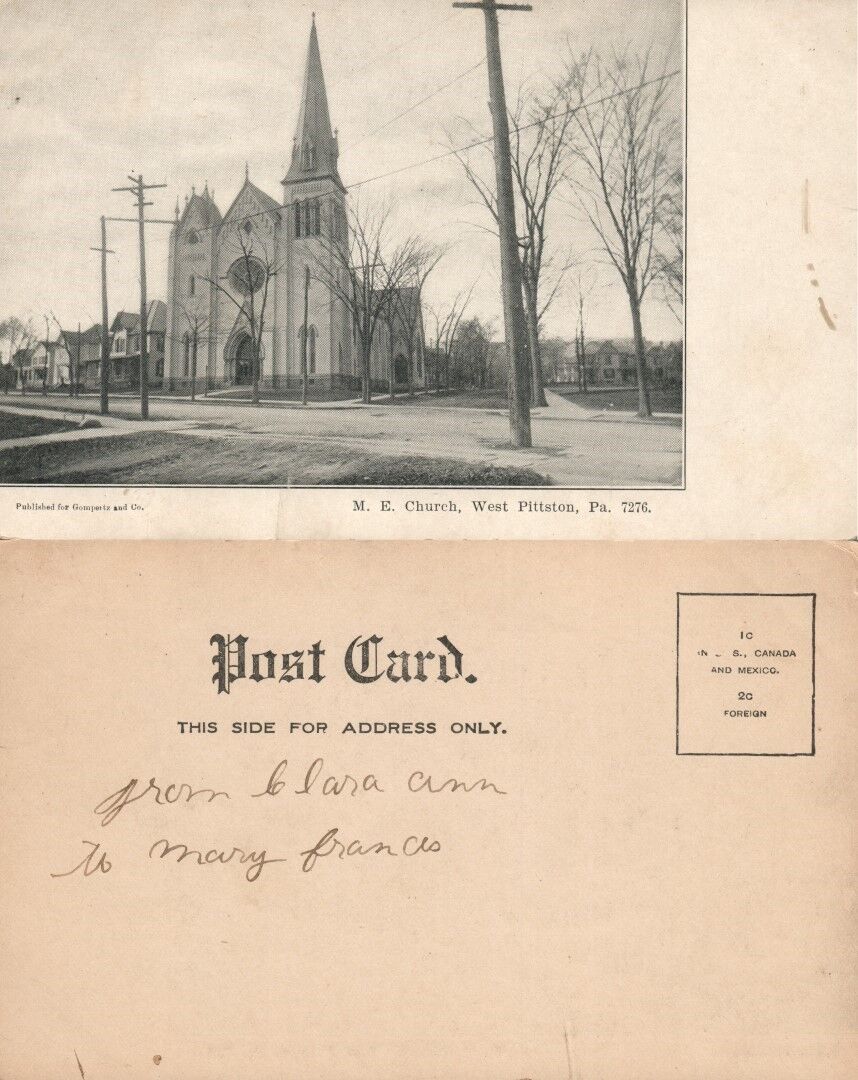 Published for Gompertz and Co.
M. E. Church, West Pittston, Pa. 7276.
Post Card.
THIS SIDE FOR ADDRESS ONLY.
1c
S., CANADA
AND MEXICO.
2c
FOREIGN
from Clara ann
to mary frances